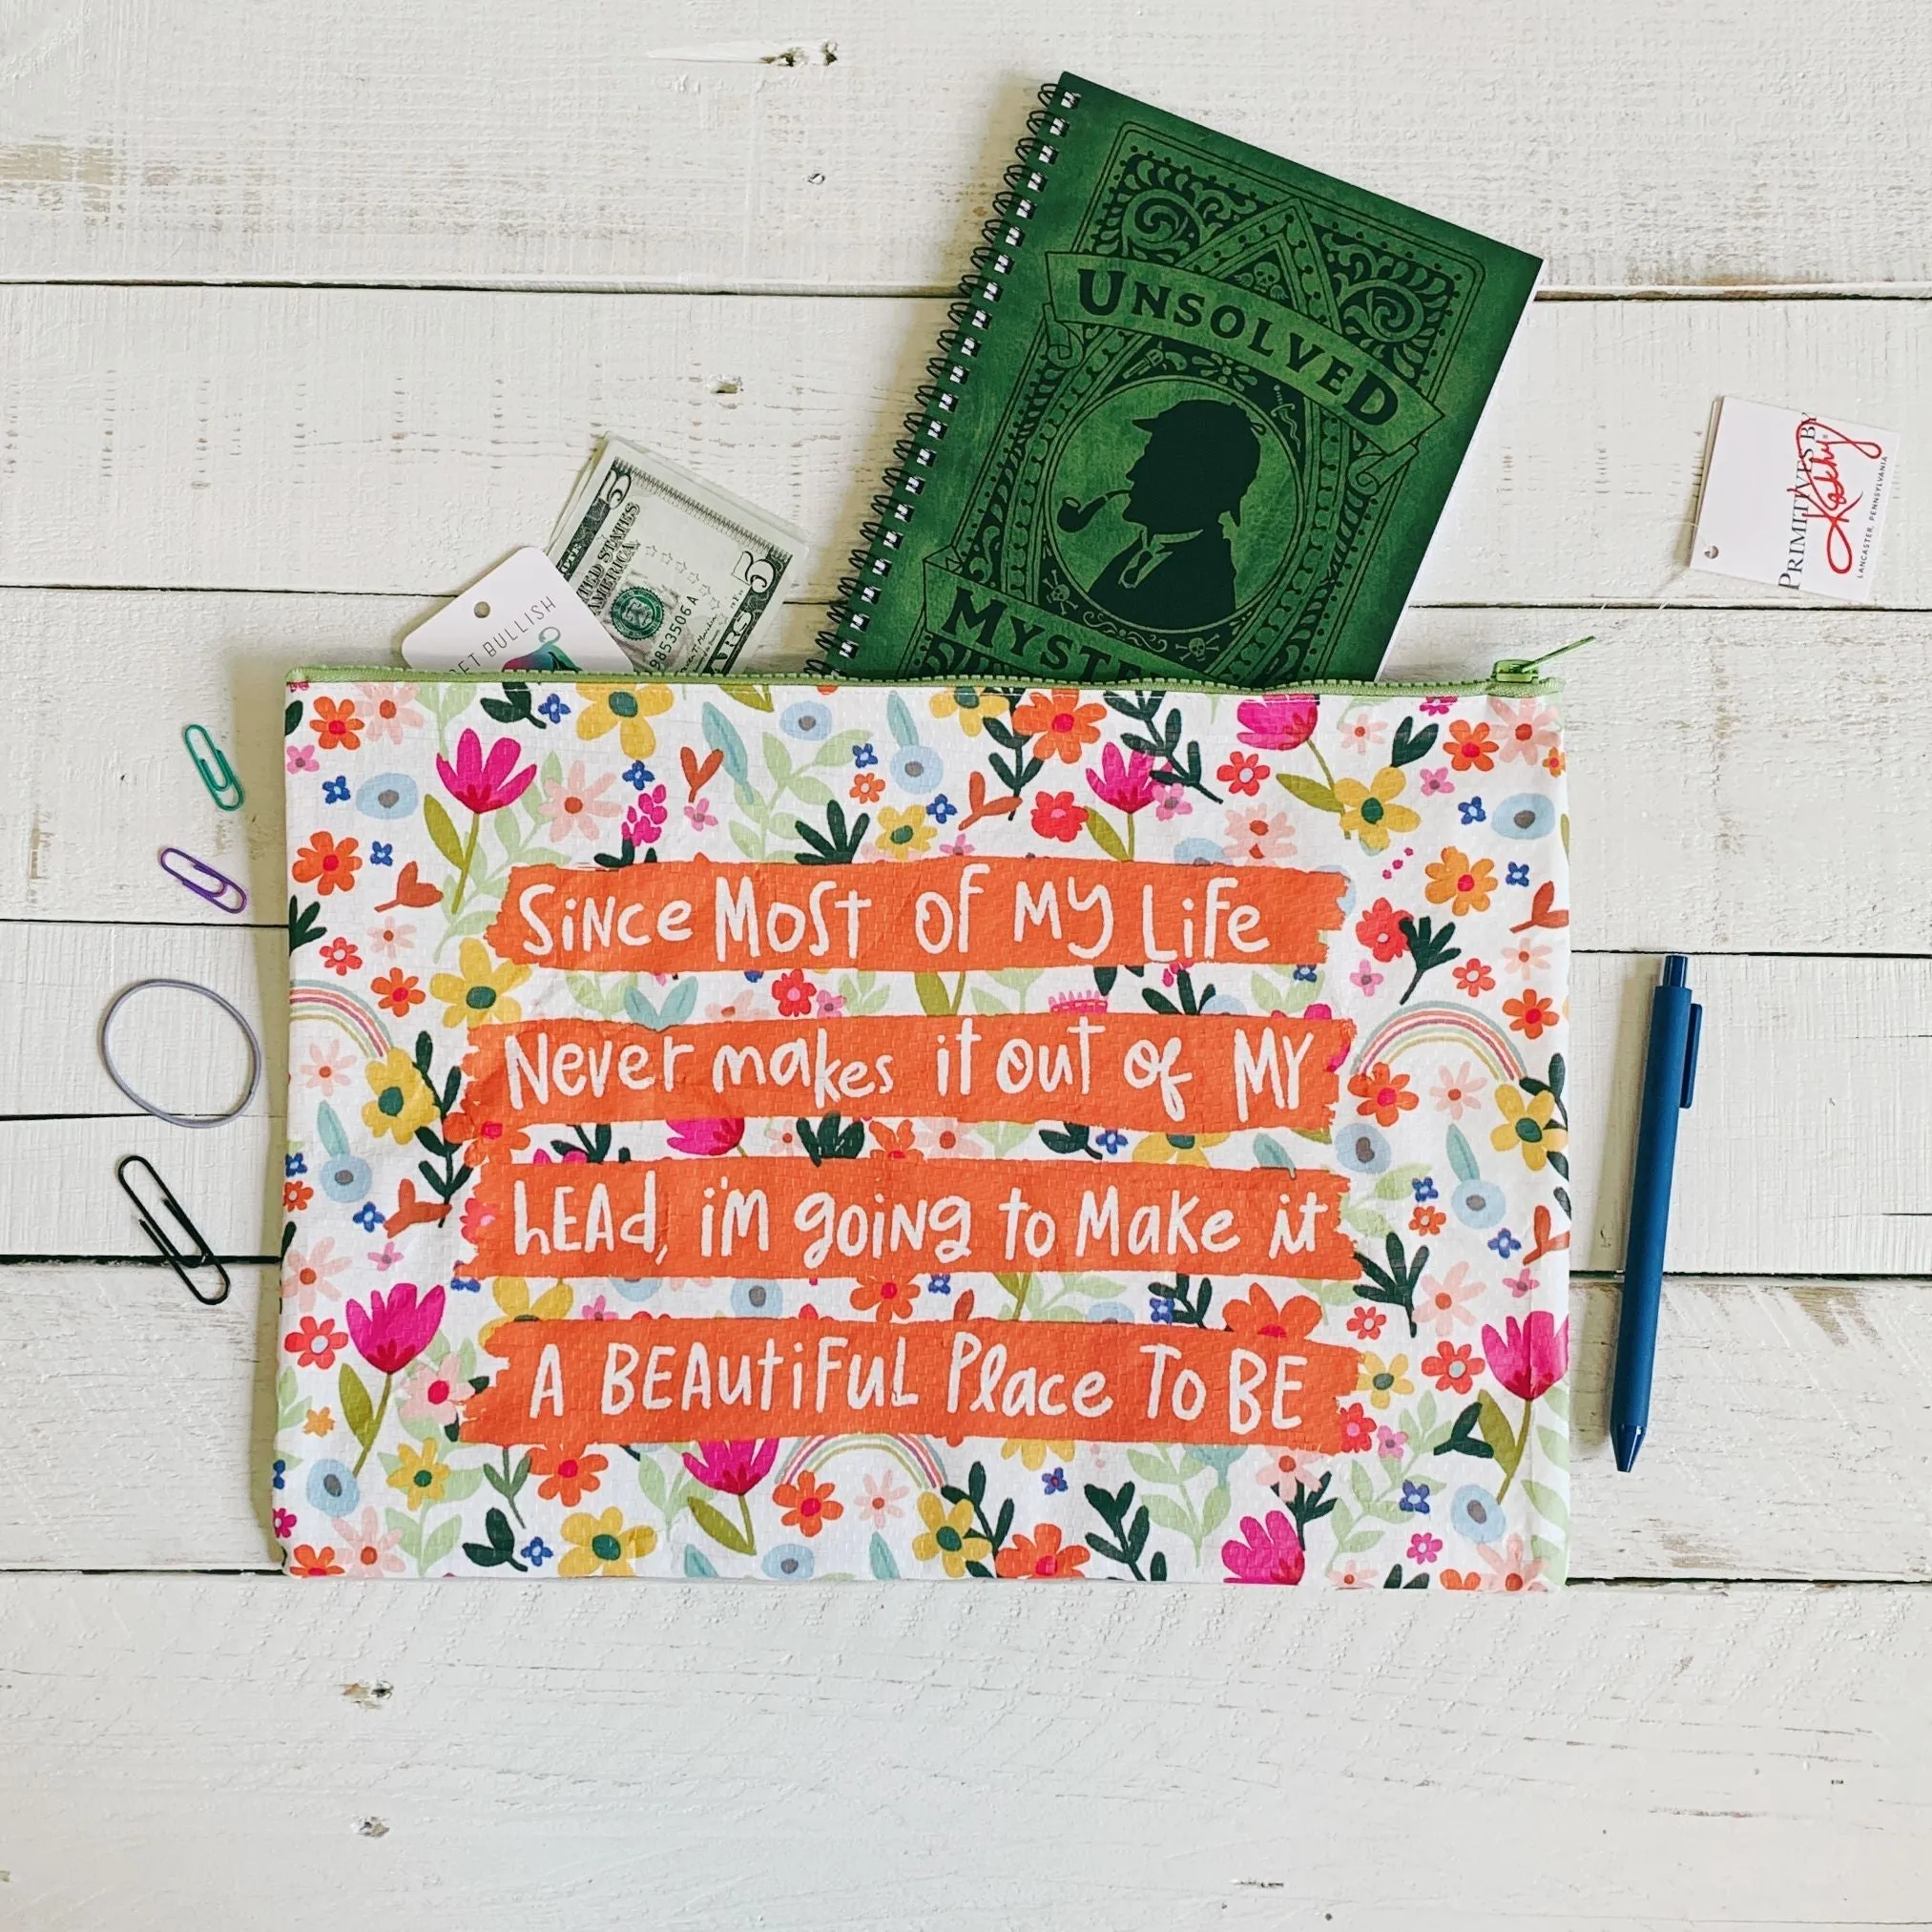 UNSOLVED
5
UNITED STATES
AMERICA
5
9853506 A
GET BULLISH
PRIMITIVES BY
Kathy
LANCASTER, PENNSYLVANIA
SiNce MoST of MY Life
Never makes it out of MY
hEAd, i'M goiNg to Make it
A BEAutiFuL Place To BE